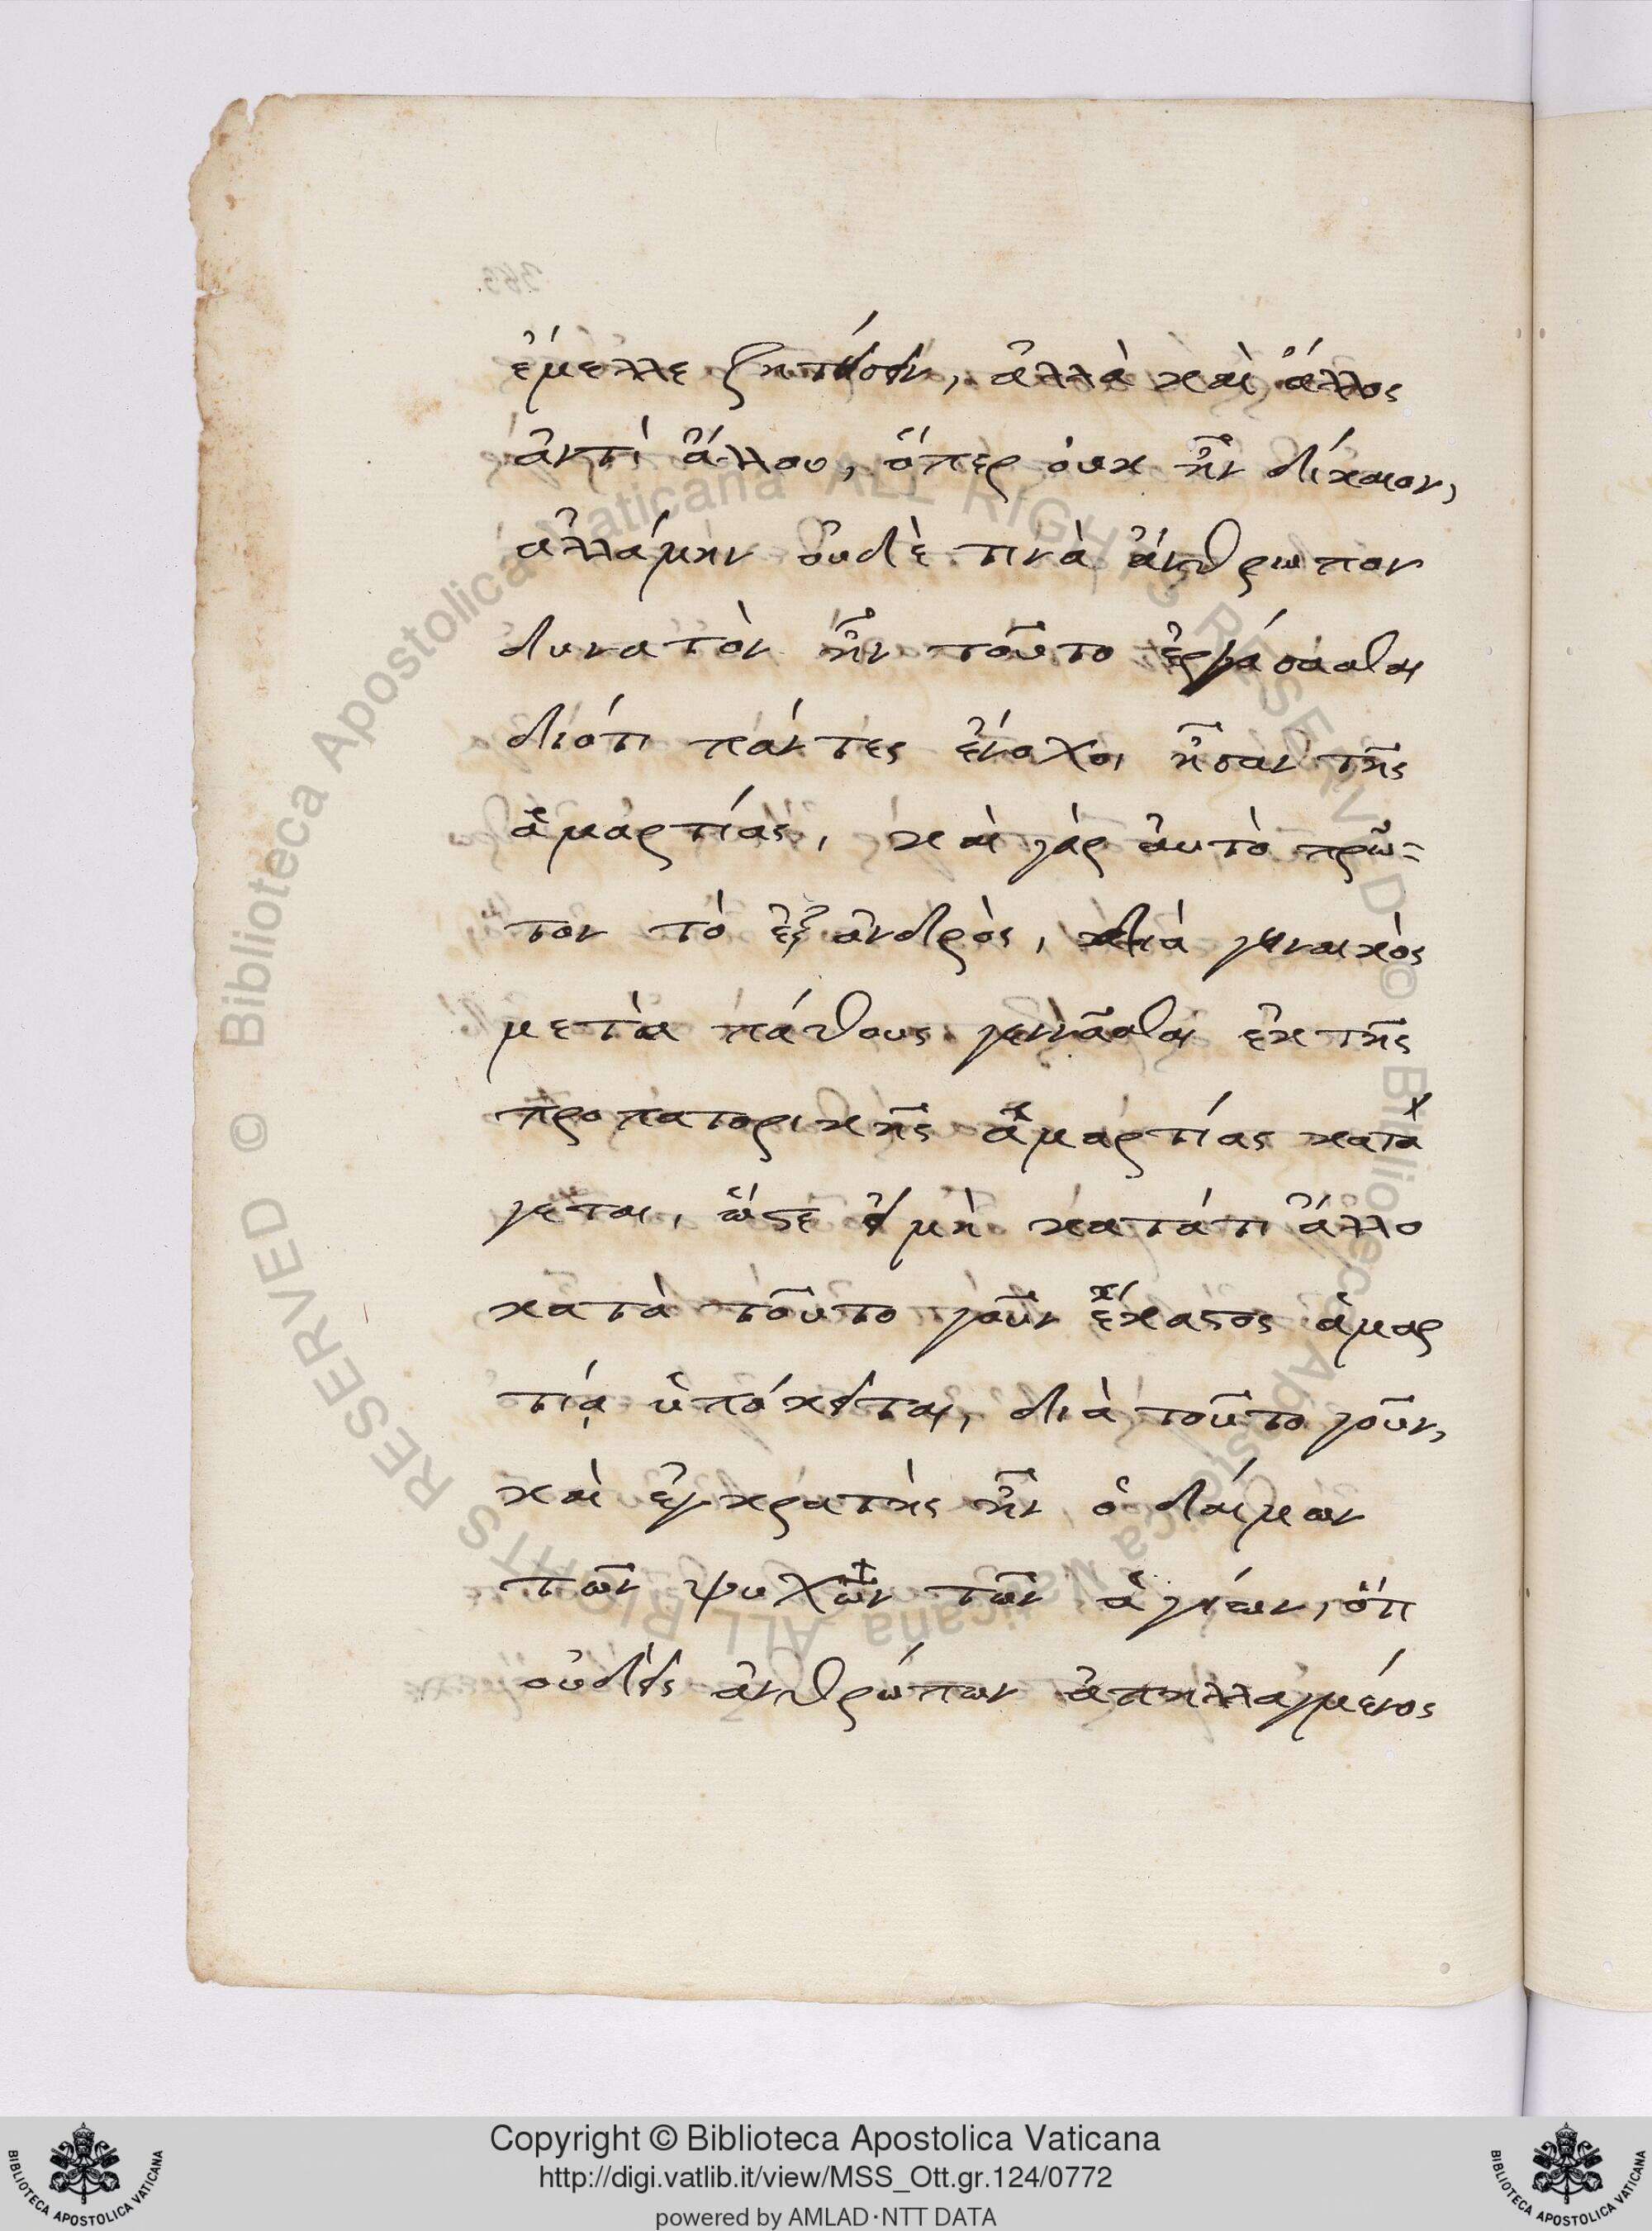 ἔμελλε ζητήσειν, ἀλλὰ καὶ ἄλλος
ἀντὶ ἄλλου, ὅπερ οὐκ ἦν δίκαιον,
ἀλλάμην οὐδὲ τινὰ ἄνθρωπον
δυνατὸν ἦν τοῦτο ἐργάσασθαι
διότι πάντες ἔνοχοι ἦσαν τῆς
ἁμαρτίας, καὶ γὰρ αὐτὸ πρῶ-
τον τὸ ἐξ ἀνδρὸς, διὰ γυναικὸς
μετὰ πάθους γεννᾶσθαι ἐκ τῆς
προπατορικῆς ἁμαρτίας κατα
γεται, ὥστε εἰ μὴ κατάτι ἄλλο
κατὰ τοῦτο γοῦν ἕκαστος ἁμαρ
τίᾳ ὑπόκειται, διὰ τοῦτο γοῦν,
καὶ ἐγκρατὴς ἦν ὁ δαίμων
τῶν ψυχῶν τῶν ἁγίων, ὅτι
οὐδεὶς ἀνθρώπων ἀπηλλαγμένος
© Biblioteca Apostolica Vaticana ALL RIGHTS RESERVED
© Biblioteca Apostolica Vaticana ALL RIGHTS RESERVED
Copyright © Biblioteca Apostolica Vaticana
http://digi.vatlib.it/view/MSS_Ott.gr.124/0772
powered by AMLAD·NTT DATA
BIBLIOTECA APOSTOLICA VATICANA
BIBLIOTECA APOSTOLICA VATICANA